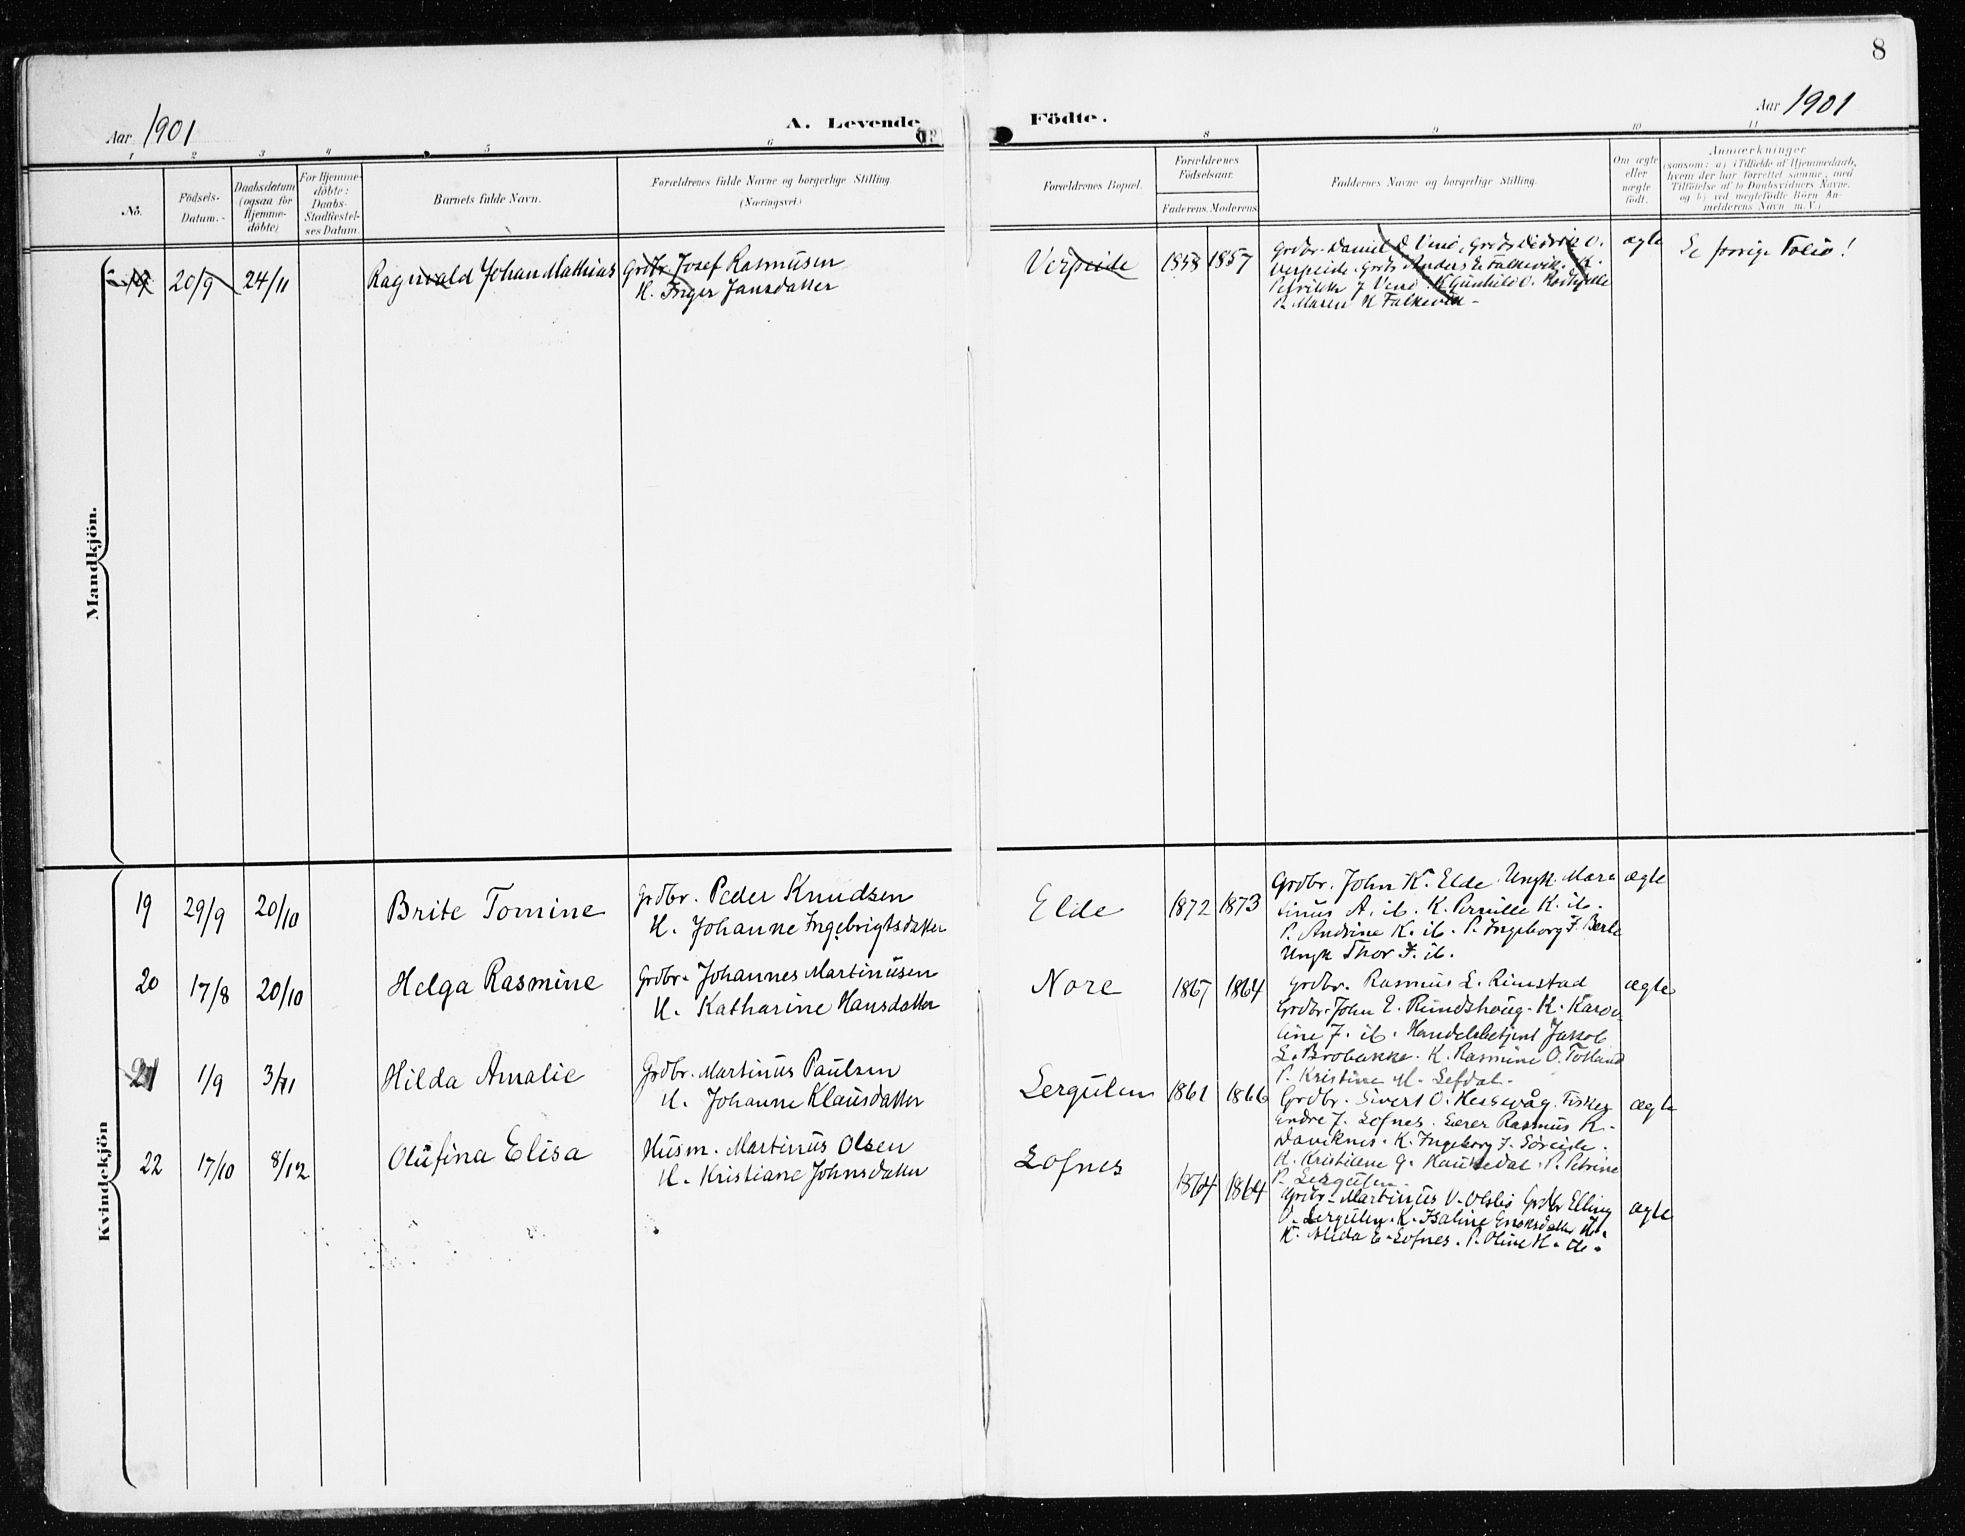 8
Aar 1901
A. Levende Födte.
Aar 1901
1 2 3 4 5 6 8 9 10 11
No.
Födsels-
Datum.
Daabsdatum
(ogsaa for
Hjemme-
döbte)
For Hjemme-
döbte:
Daabs-
Stadfæstel-
ses Datum.
Barnets fulde Navn.
Forældrenes fulde Navne og borgerlige Stilling
(Næringsvei.)
Forældrenes Bopæl.
Forældrenes
Födselsaar.
Faderens. Moderens.
Faddernes Navne og borgerlige Stilling.
Om ægte
eller
uægte
födt.
Anmærkninger
(saasom: a) i Tilfælde af Hjemmedaab,
hvem der har forrettet samme, med
Tilföielse af to Daabsvidners Navne.
og b) ved uægtefödte Börn An-
melderens Navn m. V.)
Mandkjön.
20/9
24/11
Ragnvald Johan Mathias
Grdbr Josef Rasmusen
H. Inger Jansdatter
Verpeide
1853
1857
Grdbr. Daniel D. Didrik O.
Verpeide. Anders E. Falkevik. K.
J. K. Gunhild O.
P. Maren H Falkevik -
ægte
Se forrige Folio!
Kvindekjön
19
29/9
20/10
Brite Tomine
Grdbr. Peder Knudsen
H. Johanne Ingebrigtsdatter
Elde
1872
1873
Grdbr. John K. Elde. Ungk. Mar
tinus A. ib. K. Pernille K. ib.
P. Andrine K. ib. P. Ingeborg F. Berle
Ungk Thor F. ib.
ægte
20
17/8
20/10
Helga Rasmine
Grdbr. Johannes Martinusen
H. Katharine Hansdatter
Nore
1867
1864
Grdbr. Rasmus L. Rimstad
Grdbr. John E. Rundshoug. K. Karo
line J. ib. Handelsbetjent Jakob
L. Brobakke. K. Rasmine O. Totland
P. Kristine M. Sefdal.
ægte
21
1/9
3/11
Hilda Amalie
Grdbr. Martinus Paulsen
H. Johanne Klausdatter
Lergulen
1861
1866
Grdbr. Sivert O. Hessevåg. Fisker
Endre J. Lofnes. Lærer Rasmus K.
Daviknes. K. Ingeborg J. Söreide.
K. Kristilene G. Haukedal. P. Petrine
P. Lergulen.
ægte
22
17/10
8/12
Olufina Elisa
Husm. Martinus Olsen
H. Kristiane Johnsdatter
Lofnes
1864
1864
Grdbr. Martinus V. Grdbr Elling
O. Lergulen. K. Isaline Enoksdatter ib.
K. Alida E. Lofnes. P. Oline H. ib.
ægte